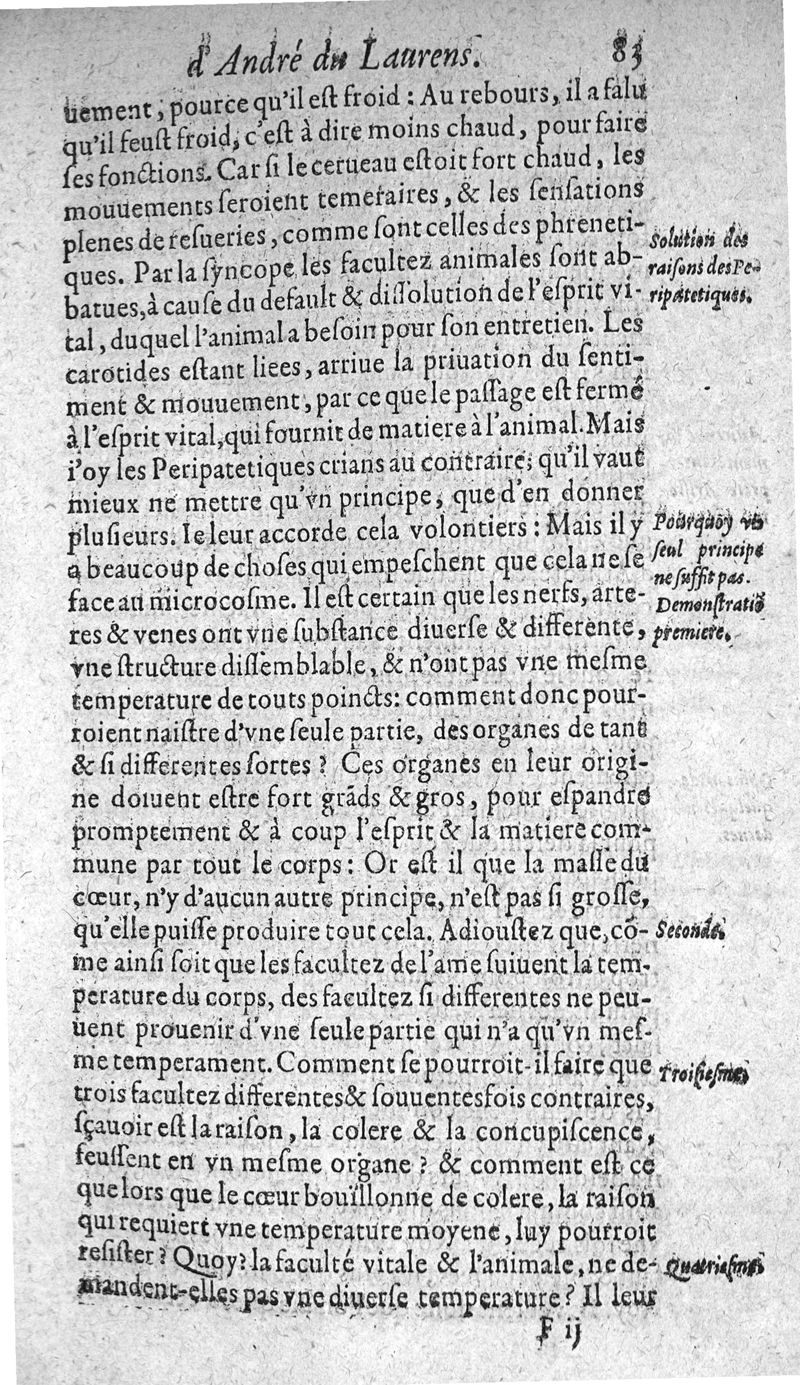 d'André du Laurens. 83
uement, pource qu'il est froid : Au rebours, il a falu
qu'il feust froid, c'est à dire moins chaud, pour faire
ses fonctions. Car si le cerueau estoit fort chaud, les
mouuements seroient temeraires, & les sensations
plenes de resueries, comme sont celles des phreneti-
ques. Par la syncope les facultez animales sont ab-
batues, à cause du default & dissolution de l'esprit vi-
tal, duquel l'animal a besoin pour son entretien. Les
carotides estant liees, arriue la priuation du senti-
ment & mouuement, par ce que le passage est fermé
à l'esprit vital, qui fournit de matiere à l'animal. Mais
i'oy les Peripatetiques crians au contraire, qu'il vaut
mieux ne mettre qu'vn principe, que d'en donner
plusieurs. Ie leur accorde cela volontiers : Mais il y
a beaucoup de choses qui empeschent que cela ne se
face au microcosme. Il est certain que les nerfs, arte-
res & venes ont vne substance diuerse & differente,
vne structure dissemblable, & n'ont pas vne mesme
temperature de touts poincts : comment donc pour-
roient naistre d'vne seule partie, des organes de tant
& si differentes sortes ? Ces organes en leur origi-
ne doiuent estre fort grãds & gros, pour espandre
promptement & à coup l'esprit & la matiere com-
mune par tout le corps : Or est il que la masse du
cœur, n'y d'aucun autre principe, n'est pas si grosse,
qu'elle puisse produire tout cela. Adioustez que, cõ-
me ainsi soit que les facultez de l'ame suiuent la tem-
perature du corps, des facultez si differentes ne peu-
uent prouenir d'vne seule partie qui n'a qu'vn mes-
me temperament. Comment se pourroit-il faire que
trois facultez differentes & souuentesfois contraires,
sçauoir est la raison, la colere & la concupiscence,
feussent en vn mesme organe ? & comment est ce
que lors que le cœur bouïllonne de colere, la raison
qui requiert vne temperature moyene, luy pourroit
resister ? Quoy ? la faculté vitale & l'animale, ne de-
mandent-elles pas vne diuerse temperature ? Il leur
F ij
Solution des
raisons des Pe-
ripatetiques.
Pourquoy vn
seul principe
ne suffit pas.
Demonstratiõ
premiere.
Seconde.
Troisiesme.
Quatriesme.